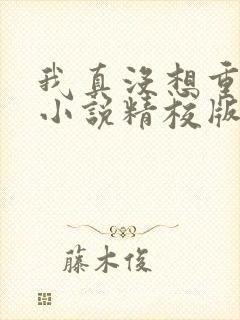 我真没想重
小说精校版
藤木俊